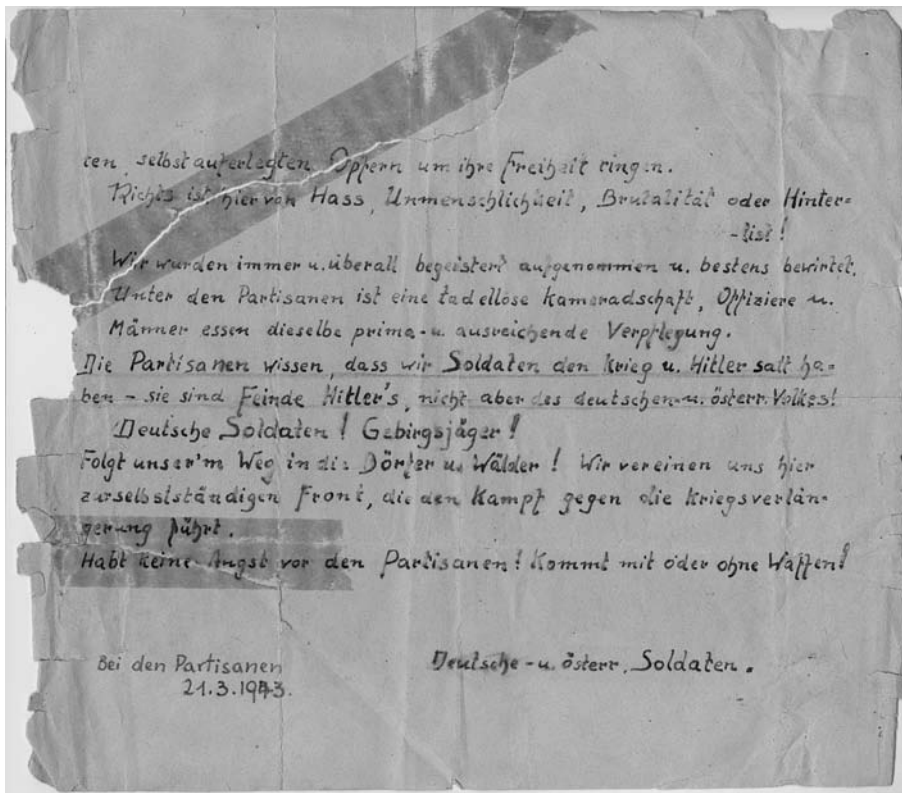 ren selbstauferlegten Opfern um ihre Freiheit ringen.
Nichts ist hier von Hass, Unmenschlichkeit, Brutalität oder Hinter=
-list!
Wir wurden immer u. überall begeistert aufgenommen u. bestens bewirtet.
Unter den Partisanen ist eine tadellose Kameradschaft, Offiziere u.
Männer essen dieselbe prima- u. ausreichende Verpflegung.
Die Partisanen wissen, dass wir Soldaten den Krieg u. Hitler satt ha=
ben – sie sind Feinde Hitler's, nicht aber des deutschen- u. österr. Volkes!
Deutsche Soldaten! Gebirgsjäger!
Folgt unser'm Weg in die Dörfer u. Wälder! Wir vereinen uns hier
zurselbstständigen Front, die den Kampf gegen die Kriegsverlän=
gerung führt.
Habt keine Angst vor den Partisanen! Kommt mit oder ohne Waffen!
Bei den Partisanen
21.3.1943.
Deutsche- u. österr. Soldaten.